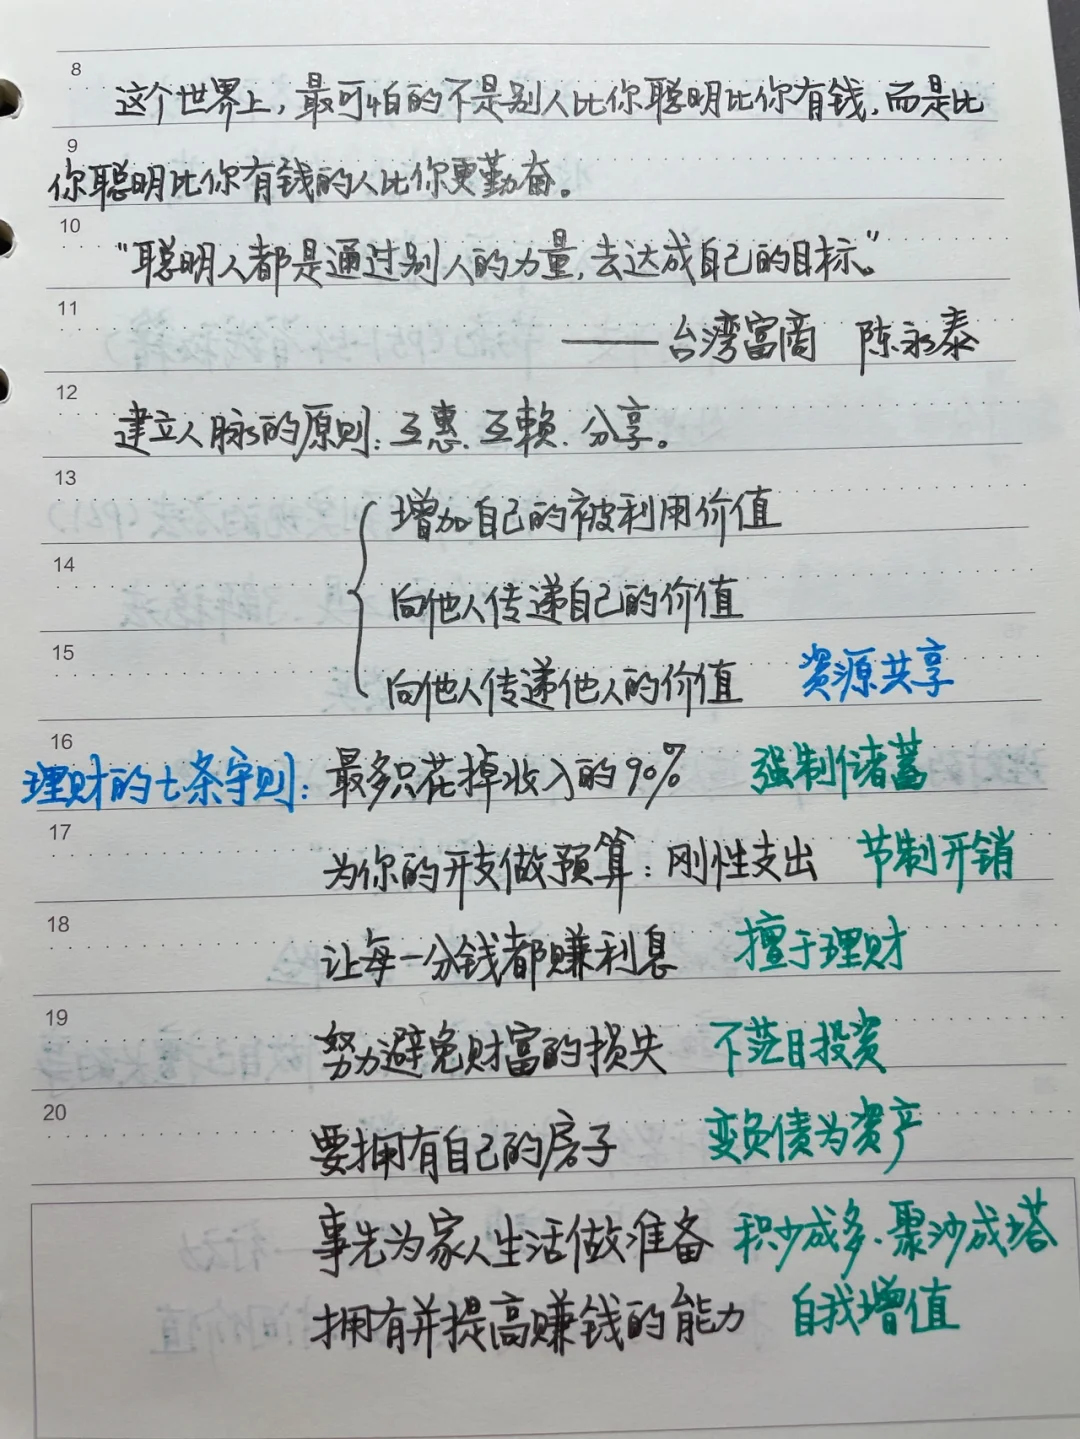 8
这个世界上，最可怕的不是别人比你聪明比你有钱，而是比
9
你聪明比你有钱的人比你更勤奋。
10
“聪明人都是通过别人的力量，去达成自己的目标。”
11
——台湾富商 陈永泰
12
建立人脉的原则：互惠、互赖、分享。
13
增加自己的被利用价值
14
向他人传递自己的价值
15
向他人传递他人的价值 资源共享
16
理财的七条守则：最多只花掉收入的90% 强制储蓄
17
为你的开支做预算：刚性支出 节制开销
18
让每一分钱都赚利息 擅于理财
19
努力避免财富的损失 不茫目投资
20
要拥有自己的房子 变负债为资产
事先为家人生活做准备 积少成多、聚沙成塔
拥有并提高赚钱的能力 自我增值